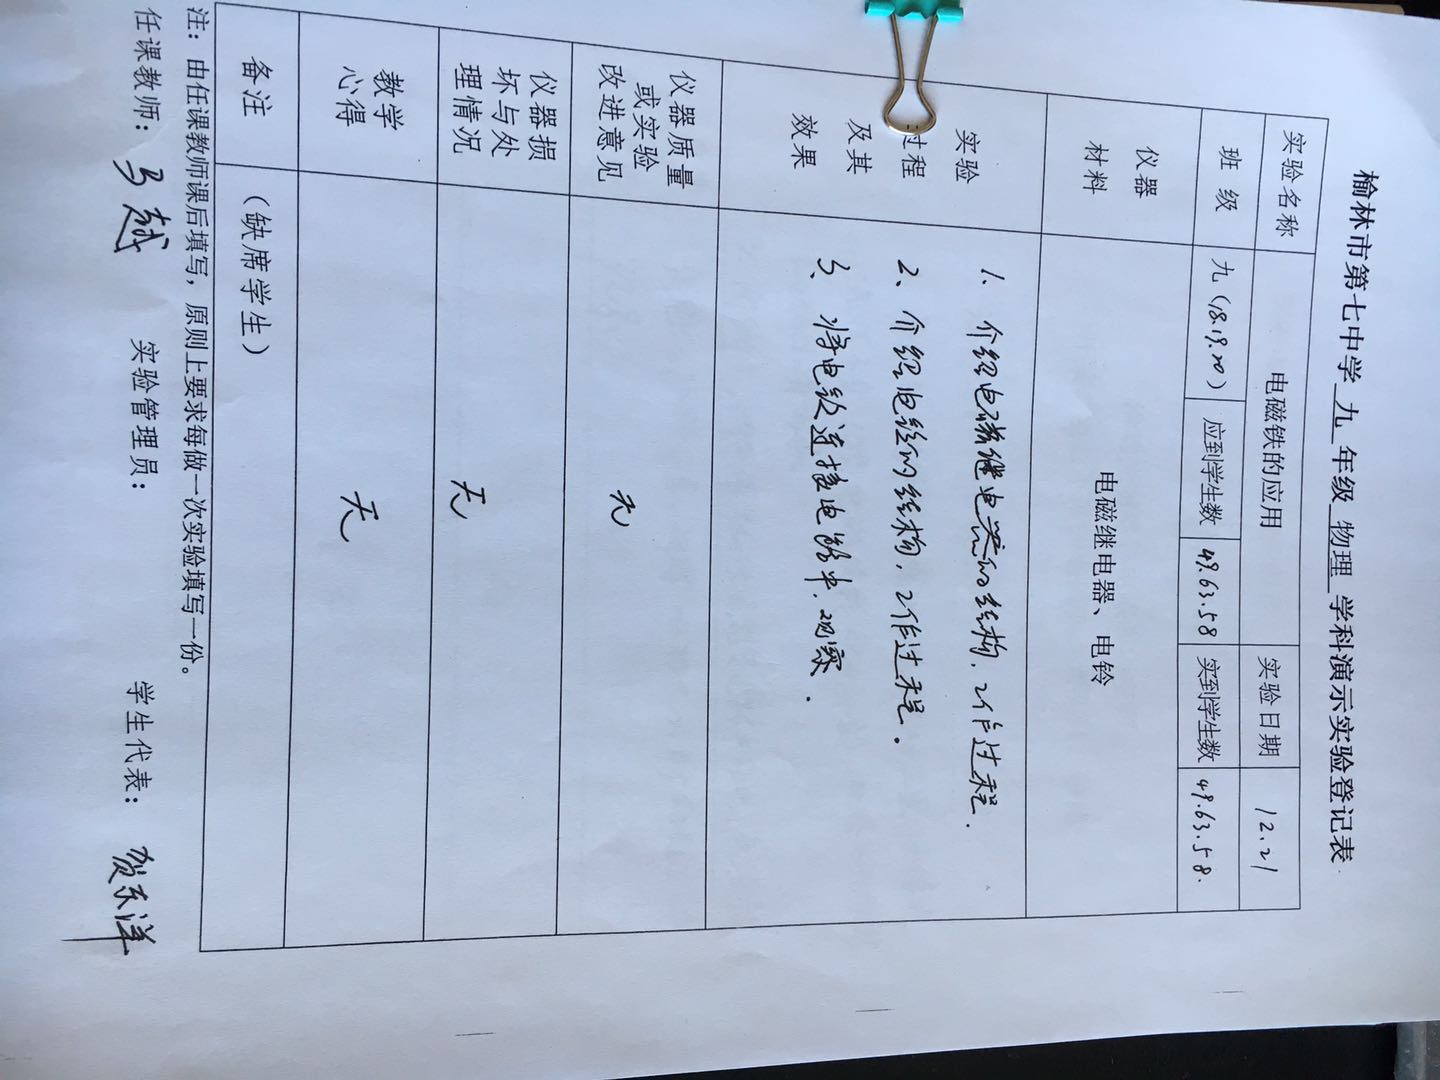 榆林市第七中学 九 年级 物理 学科演示实验登记表
实验名称 电磁铁的应用 实验日期 12.21
班 级 九(18.19.20) 应到学生数 49.63.58 实到学生数 49.63.58.
仪器
材料
电磁继电器、电铃
实验
过程
及其
效果
1、介绍电磁继电器的结构,工作过程.
2、介绍电铃的结构,工作过程.
3、将电铃连接电路中,观察.
仪器质量
或实验
改进意见
无
仪器损
坏与处
理情况
无
教学
心得
无
备注 (缺席学生)
注:由任课教师课后填写,原则上要求每做一次实验填写一份。
任课教师: 实验管理员: 学生代表: 贺东洋